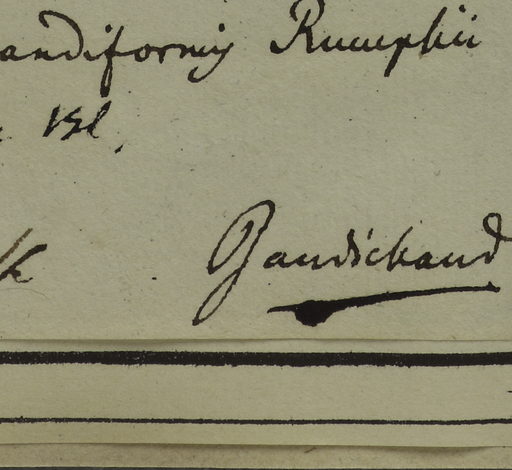 andiformis Rumphii
Bl.
Gaudichaud